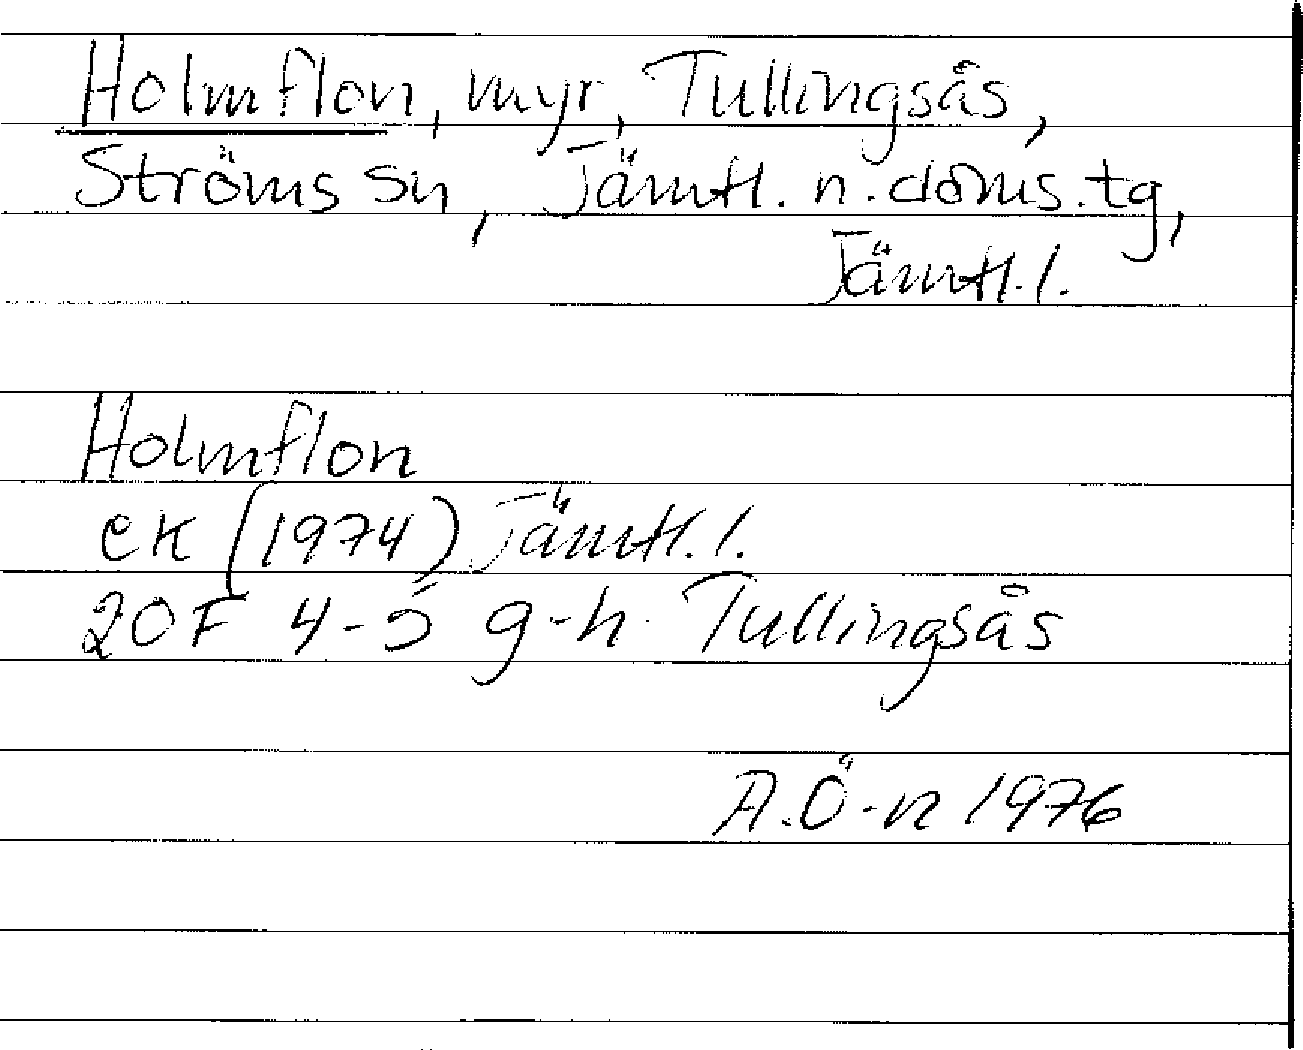 Holmflon, myr, Tullingsås,
Ströms sn, Jämtl. n. doms. tg,
Jämtl. l.
Holmflon
ek (1974) Jämtl. l.
20F 4-5 g-h Tullingsås
A.Ö-n 1976